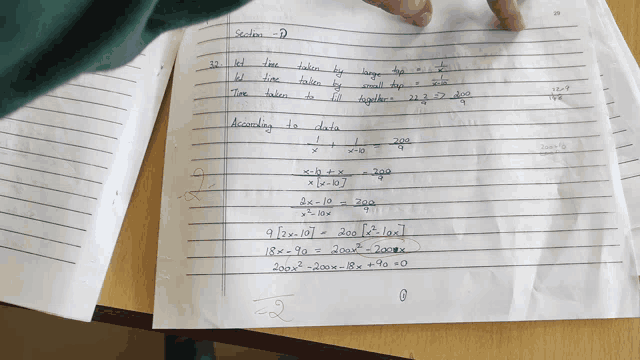 Section - D
32. Let time taken by large tap = 1/x
Let time taken by small tap = 1/x-10
Time taken to fill together = 22 2/9 => 200/9
According to data
1/x + 1/x-10 = 200/9
x-10 + x / x[x-10] = 200/9
-2-
2x-10 / x²-10x = 200/9
9[2x-10] = 200[x²-10x]
18x - 90 = 200x² - 200x
200x² - 200x - 18x + 90 = 0
-2